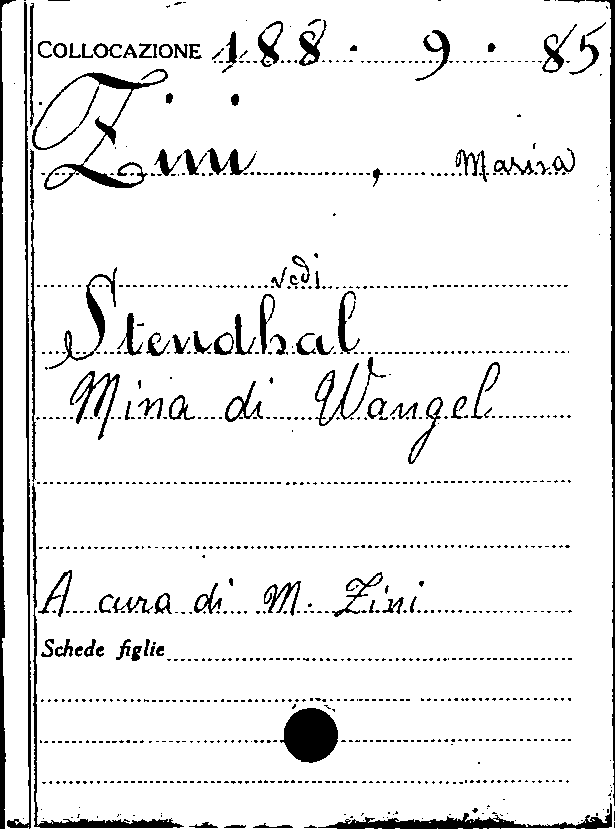 COLLOCAZIONE 188. 9. 85
Zini, Marisa
vedi
Stendhal
Mina di Wangel
A cura di M. Zini
Schede figlie